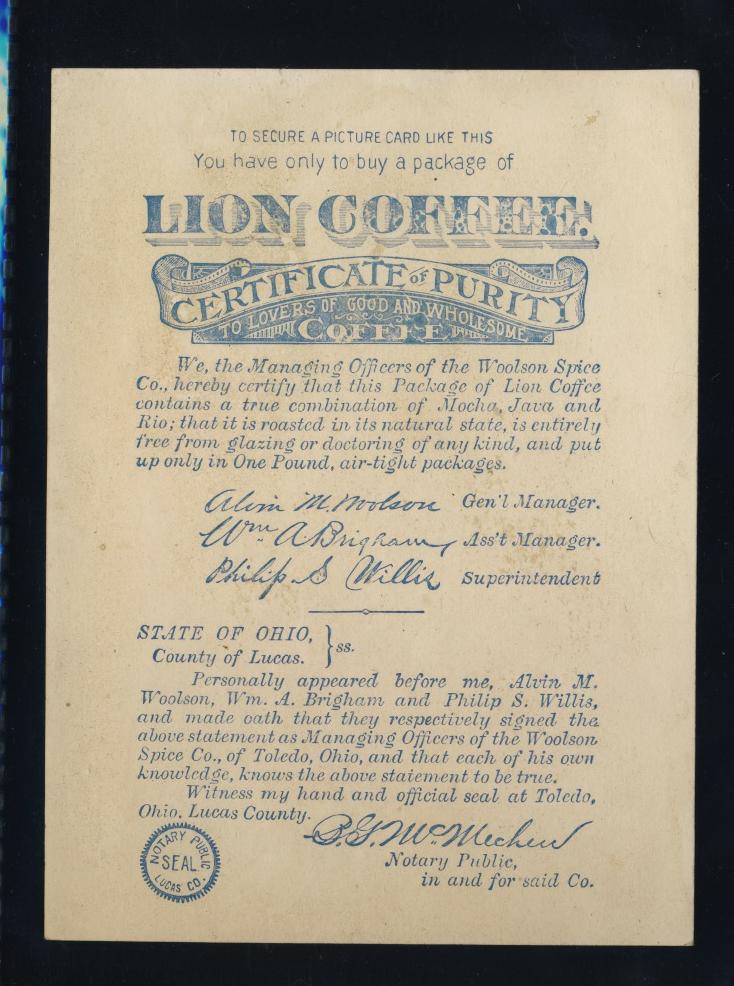 TO SECURE A PICTURE CARD LIKE THIS
You have only to buy a package of
LION COFFEE.
CERTIFICATE OF PURITY
TO LOVERS OF GOOD AND WHOLESOME
COFFEE
We, the Managing Officers of the Woolson Spice
Co., hereby certify that this Package of Lion Coffee
contains a true combination of Mocha, Java and
Rio; that it is roasted in its natural state, is entirely
free from glazing or doctoring of any kind, and put
up only in One Pound, air-tight packages.
Alvin M. Woolson Gen'l Manager.
Wm. A. Brigham, Ass't Manager.
Philip S Willis Superintendent
STATE OF OHIO,
County of Lucas. } ss.
Personally appeared before me, Alvin M.
Woolson, Wm. A. Brigham and Philip S. Willis,
and made oath that they respectively signed the
above statement as Managing Officers of the Woolson
Spice Co., of Toledo, Ohio, and that each of his own
knowledge, knows the above statement to be true.
Witness my hand and official seal at Toledo,
Ohio. Lucas County.
B. G. McMechen
Notary Public,
in and for said Co.
NOTARY PUBLIC
SEAL
LUCAS CO.